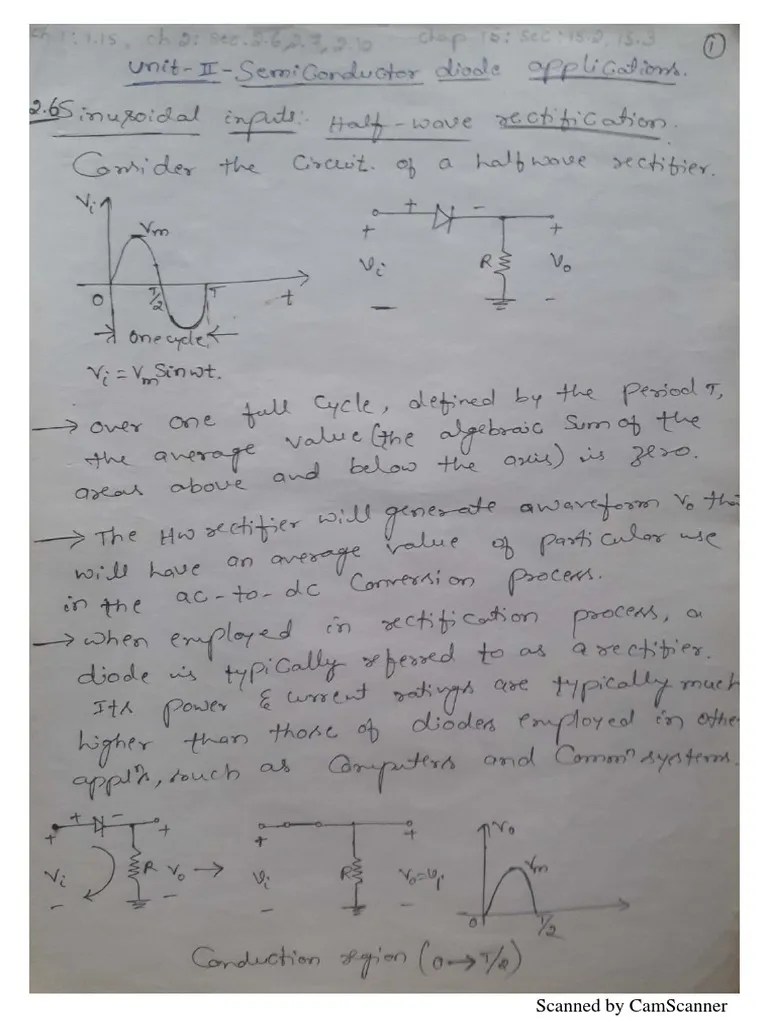 ch 1: 1.15, ch 2: sec: 2.6, 2.7, 2.10 chap 15: sec: 15.2, 15.3
1
Unit-II-SemiConductor diode applications.
2.6 Sinusoidal inputs: Half-wave rectification.
Consider the Circuit. of a halfwave rectifier.
Vi
Vm
0 T/2 T t
one cycle
Vi = Vm Sinwt.
+ -
+ +
Vi R Vo
- -
→ over one full cycle, defined by the period T,
the average value (the algebraic sum of the
areas above and below the axis) is zero.
→ The HW rectifier will generate a waveform Vo tha
will have an average value of particular use
in the ac-to-dc Conversion process.
→ when employed in rectification process, a
diode is typically referred to as a rectifier.
Its power & current ratings are typically much
higher than those of diodes employed in othe
appl⁠ns, such as Computers and Commn systems.
+ -
+ +
Vi R Vo →
- -
+ +
Vi R Vo=Vi
- -
Vo
Vm
0 T/2
Conduction region (0→T/2)
Scanned by CamScanner